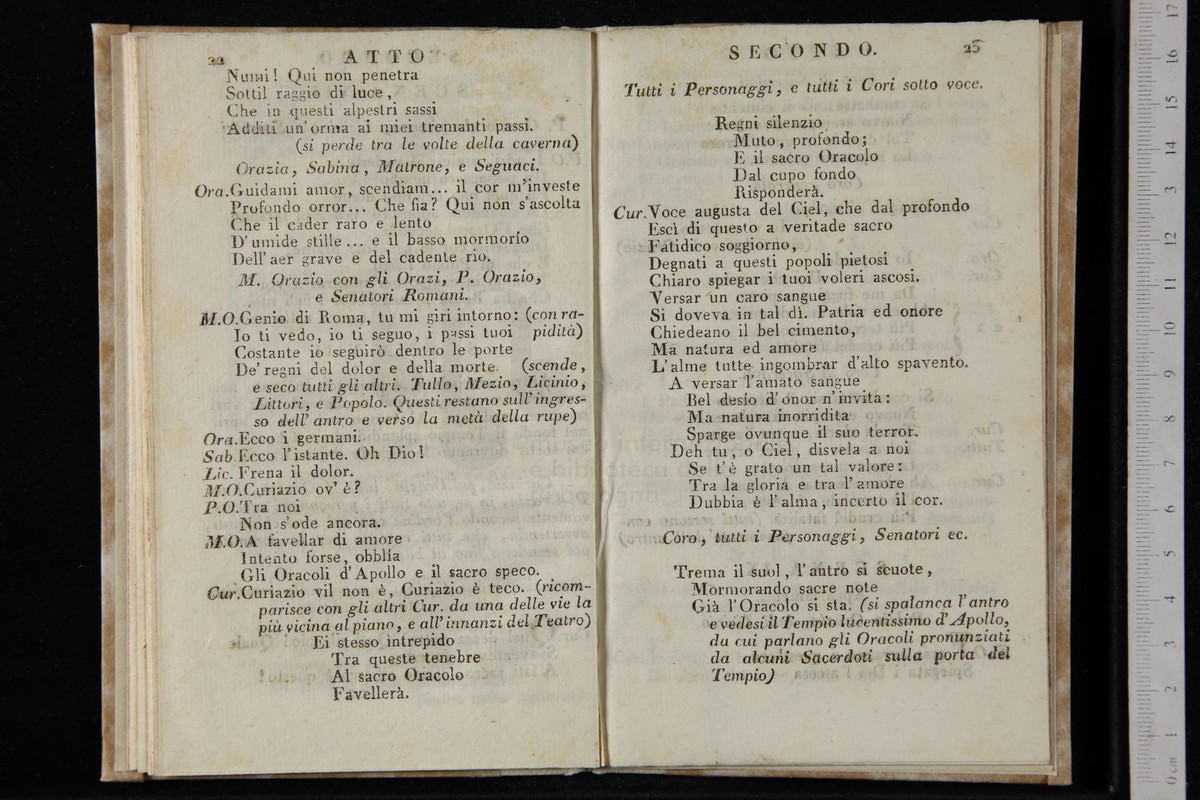 22
ATTO
Numi! Qui non penetra
Sottil raggio di luce,
Che in questi alpestri sassi
Additi un'orma ai miei tremanti passi.
(si perde tra le volte della caverna)
Orazia, Sabina, Matrone, e Seguaci.
Ora.Guidami amor, scendiam... il cor m'investe
Profondo orror... Che fia? Qui non s'ascolta
Che il cader raro e lento
D'umide stille... e il basso mormorío
Dell'aer grave e del cadente rio.
M. Orazio con gli Orazi, P. Orazio,
e Senatori Romani.
M.O.Genio di Roma, tu mi giri intorno: (con ra-
Io ti vedo, io ti seguo, i passi tuoi pidità)
Costante io seguirò dentro le porte
De' regni del dolor e della morte. (scende,
e seco tutti gli altri. Tullo, Mezio, Licinio,
Littori, e Popolo. Questi restano sull'ingres-
so dell' antro e verso la metà della rupe)
Ora.Ecco i germani.
Sab.Ecco l'istante. Oh Dio!
Lic. Frena il dolor.
M.O.Curiazio ov' è?
P.O.Tra noi
Non s'ode ancora.
M.O.A favellar di amore
Intento forse, obblía
Gli Oracoli d'Apollo e il sacro speco.
Cur.Curiazio vil non è, Curiazio è teco. (ricom-
parisce con gli altri Cur. da una delle vie la
più vicina al piano, e all'innanzi del Teatro)
Ei stesso intrepido
Tra queste tenebre
Al sacro Oracolo
Favellerà.
SECONDO.
23
Tutti i Personaggi, e tutti i Cori sotto voce.
Regni silenzio
Muto, profondo;
E il sacro Oracolo
Dal cupo fondo
Risponderà.
Cur.Voce augusta del Ciel, che dal profondo
Esci di questo a veritade sacro
Fatidico soggiorno,
Degnati a questi popoli pietosi
Chiaro spiegar i tuoi voleri ascosi.
Versar un caro sangue
Si doveva in tal dì. Patria ed onore
Chiedeano il bel cimento,
Ma natura ed amore
L'alme tutte ingombrar d'alto spavento.
A versar l'amato sangue
Bel desío d'onor n'invita:
Ma natura inorridita
Sparge ovunque il suo terror.
Deh tu, o Ciel, disvela a noi
Se t'è grato un tal valore:
Tra la gloria e tra l'amore
Dubbia è l'alma, incerto il cor.
Coro, tutti i Personaggi, Senatori ec.
Trema il suol, l'antro si scuote,
Mormorando sacre note
Già l'Oracolo si sta. (si spalanca l'antro
e vedesi il Tempio lucentissimo d'Apollo,
da cui parlano gli Oracoli pronunziati
da alcuni Sacerdoti sulla porta del
Tempio)